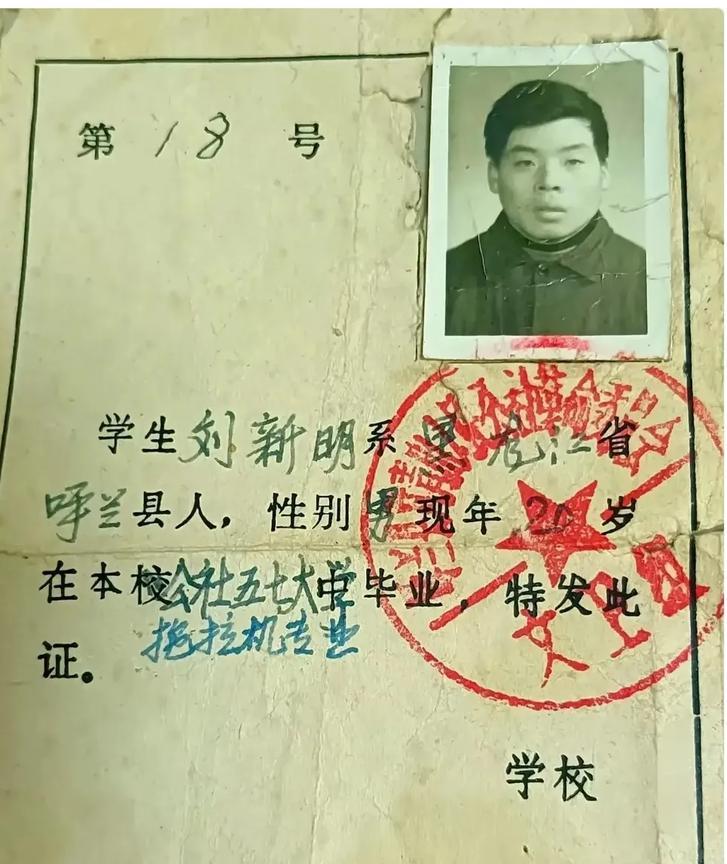 第 18 号
学生刘新明系黑龙江省
呼兰县人，性别男现年20岁
在本校公社五七大学中毕业，特发此
拖拉机专业
证。
学校